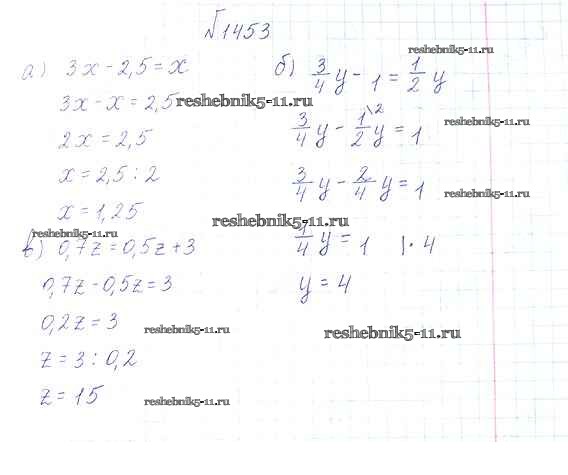 №1453
а) 3x - 2,5 = x
3x - x = 2,5
2x = 2,5
x = 2,5 : 2
x = 1,25
б) 3/4 y - 1 = 1/2 y
3/4 y - 1/2 \2 y = 1
3/4 y - 2/4 y = 1
1/4 y = 1 |· 4
y = 4
в) 0,7z = 0,5z + 3
0,7z - 0,5z = 3
0,2z = 3
z = 3 : 0,2
z = 15
reshebnik5-11.ru
reshebnik5-11.ru
reshebnik5-11.ru
reshebnik5-11.ru
reshebnik5-11.ru
reshebnik5-11.ru
reshebnik5-11.ru
reshebnik5-11.ru
reshebnik5-11.ru